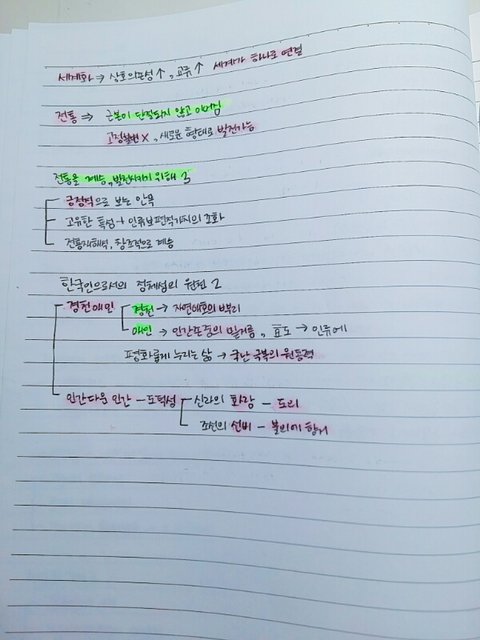 세계화 → 상호의존성↑, 교류↑ 세계가 하나로 연결
전통 ⇒ 근본이 단절되지 않고 이어짐
고정불변 X, 새로운 형태로 발전가능
전통을 계승, 발전시키기 위해 3
긍정적으로 보는 안목
고유한 특성 + 인류보편적가치의 조화
전통재해석, 창조적으로 계승
한국인으로서의 정체성의 원천 2
경천애인 경천 → 자연애호의 뿌리
애인 → 인간존중의 밑거름, 효도 → 인류애
평화롭게 누리는 삶 → 국난 극복의 원동력
인간다운 인간 - 도덕성 신라의 화랑 - 도의
조선의 선비 - 불의에 항거